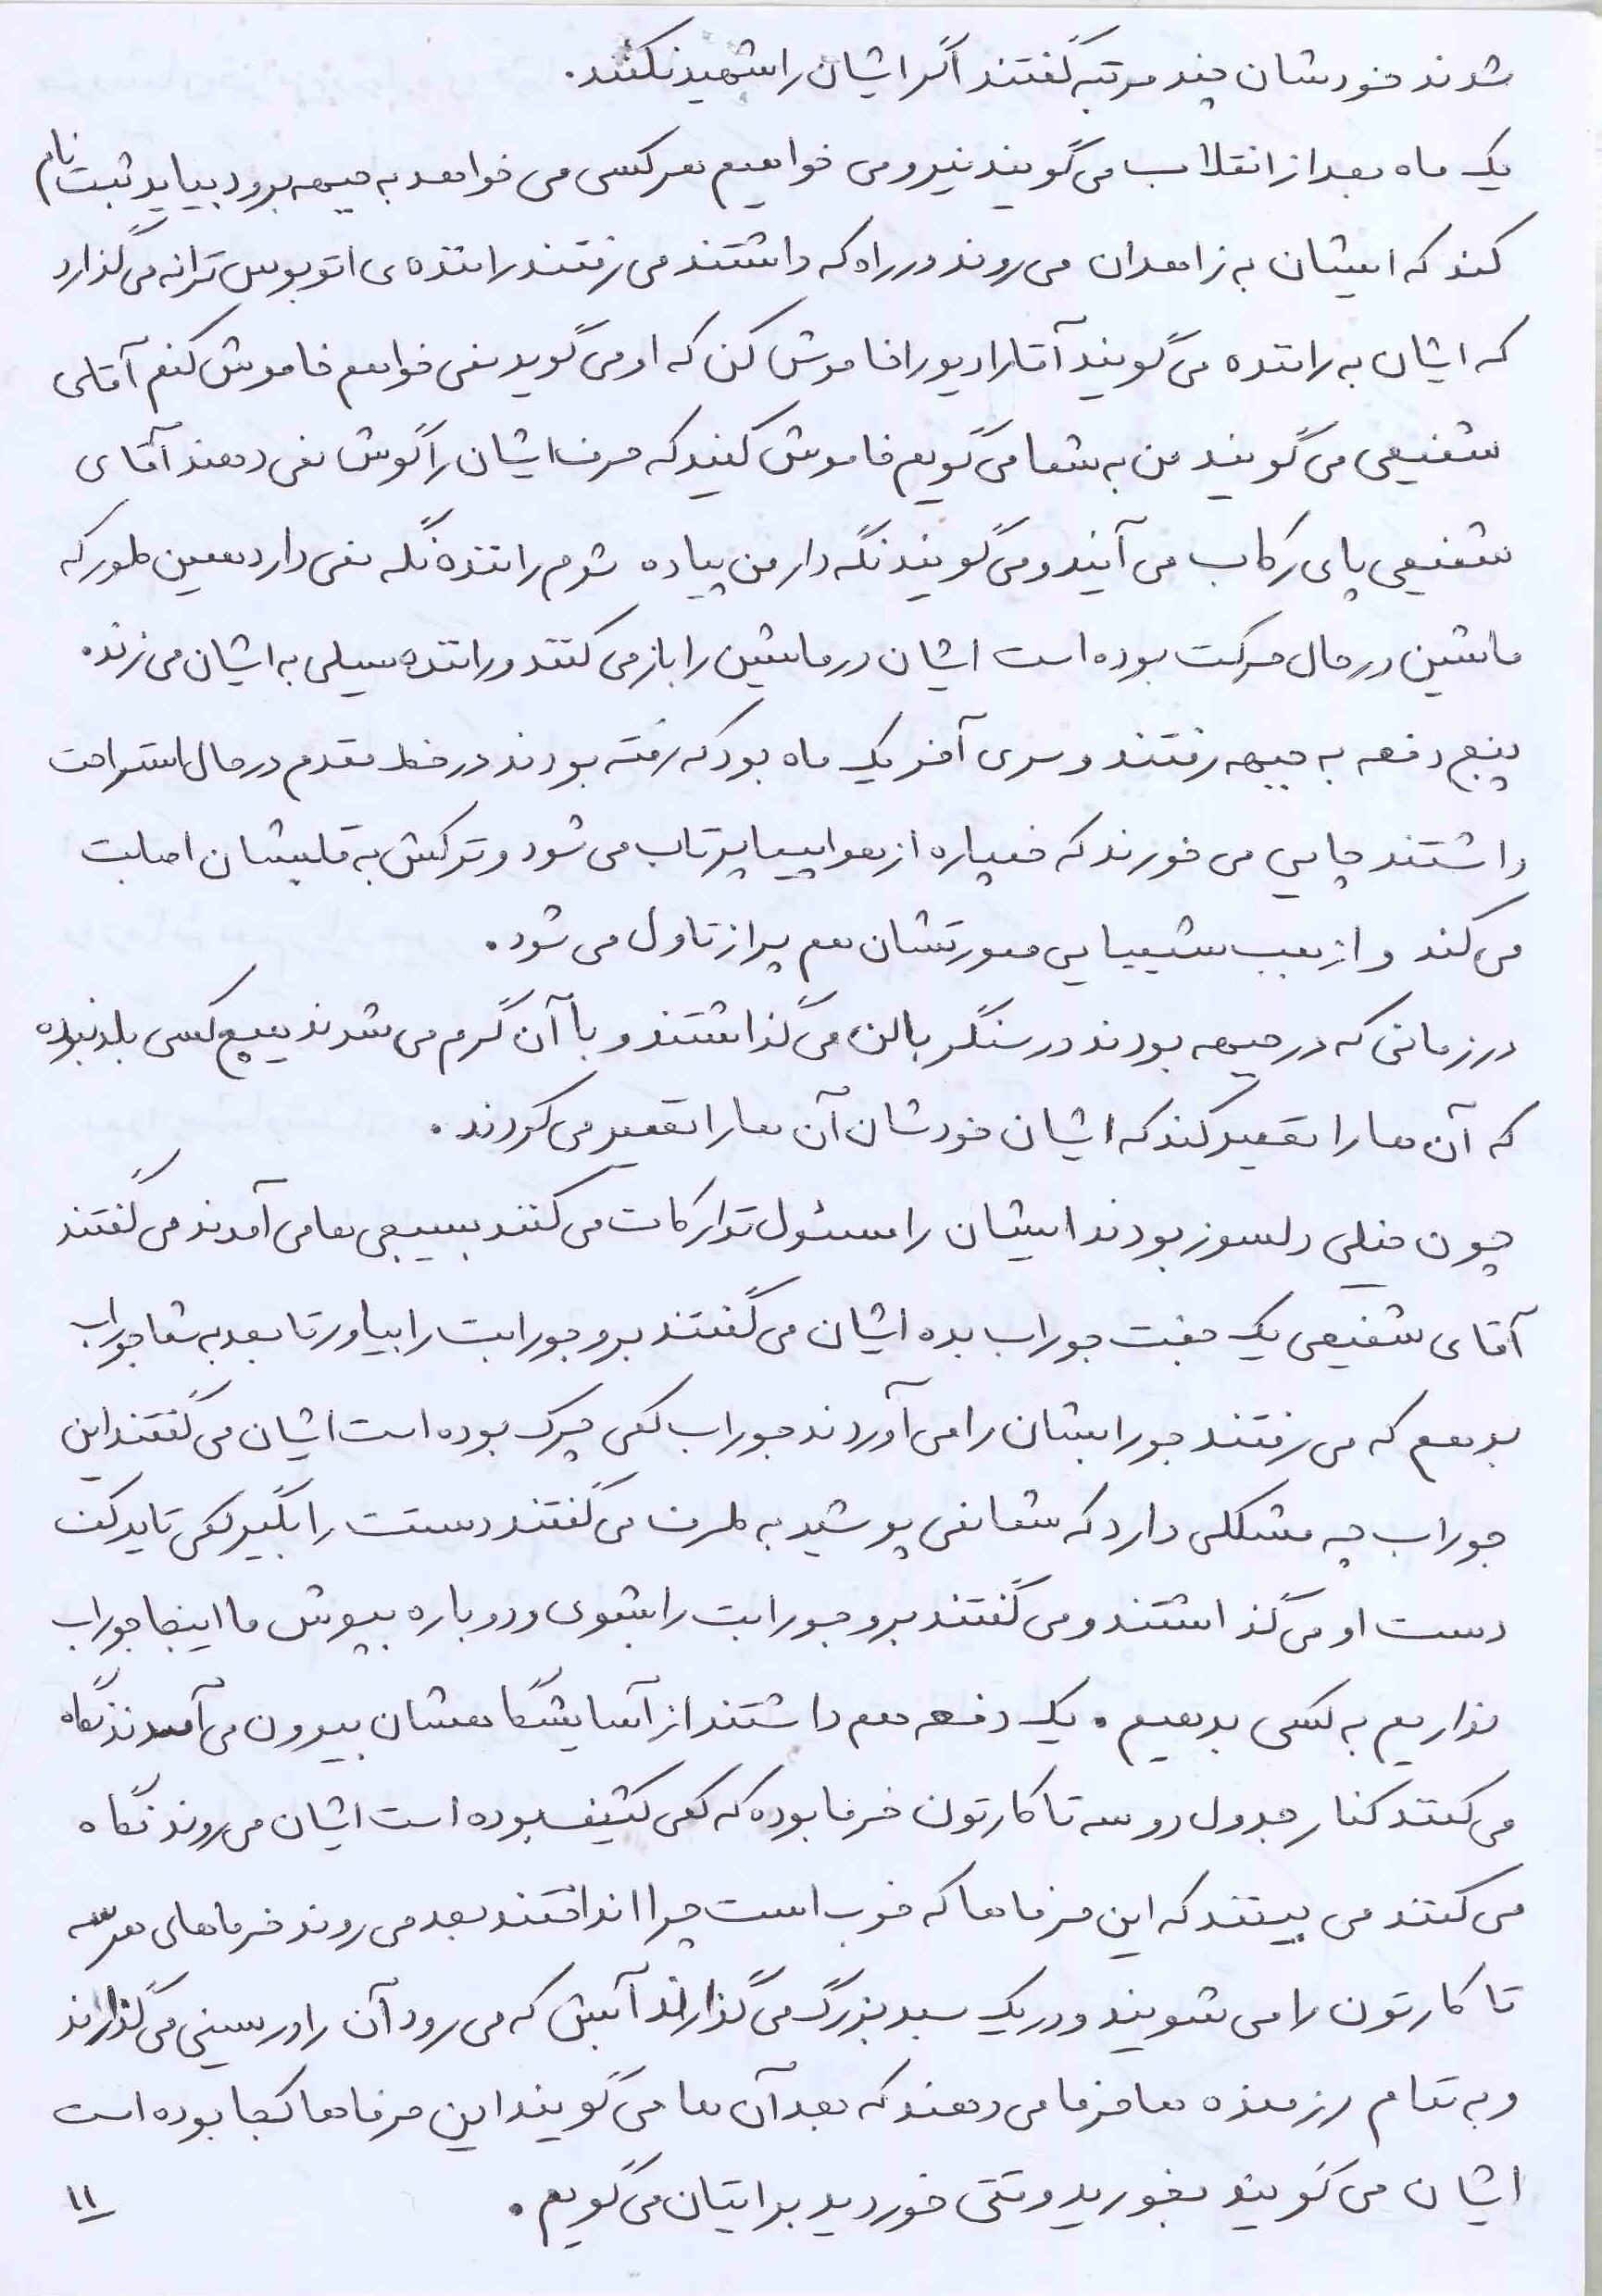 شدند خودشان چند مرتبه گفتند اگر ایشان را شهید نکنند.
یک ماه بعد از انقلاب می گویند نیرو می خواهیم هر کسی می خواهد به جبهه برود بیاید ثبت نام
کند که ایشان به زاهدان می روند در راه که داشتند می رفتند راننده ی اتوبوس ترانه می گذارد
که ایشان به راننده می گویند آقا رادیو را خاموش کن که او می گوید نمی خواهم خاموش کنم آقای
شفیعی می گویند من به شما می گویم خاموش کنید که حرف ایشان را گوش نمی دهند آقای
شفیعی پای رکاب می آیند و می گویند نگه دار من پیاده شوم راننده نگه نمی دارد همین طور که
ماشین در حال حرکت بوده است ایشان در ماشین را باز می کنند و راننده سیلی به ایشان می زند.
پنج دفعه به جبهه رفتند و سری آخر یک ماه بود که رفته بودند در خط مقدم در حال استراحت
داشتند چایی می خورند که خمپاره از هواپیما پرتاب می شود و ترکش به قلبشان اصابت
می کند و از بمب شیمیایی صورتشان هم پر از تاول می شود.
در زمانی که در جبهه بودند در سنگر بالن می گذاشتند و با آن گرم می شدند هیچ کسی بلد نبوده
که آن ها را تعمیر کند که ایشان خودشان آن ها را تعمیر می کردند.
چون خیلی دلسوز بودند ایشان را مسئول تدارکات می کنند بسیجی ها می آمدند می گفتند
آقای شفیعی یک جفت جوراب بده ایشان می گفتند برو جورابت را بیاور تا بعد به شما جوراب
بدهم که می رفتند جورابشان را می آوردند جوراب کمی چرک بوده است ایشان می گفتند این
جوراب چه مشکلی دارد که شما نمی پوشید به طرف می گفتند دستت را بگیر کمی تاید کف
دست او می گذاشتند و می گفتند برو جورابت را بشوی و دوباره بپوش ما اینجا جوراب
نداریم به کسی بدهیم. یک دفعه هم داشتند از آسایشگاهشان بیرون می آمدند نگاه
می کنند کنار جدول دو سه تا کارتون خرما بوده که کمی کثیف بوده است ایشان می روند نگاه
می کنند می بینند که این خرماها که خوب است چرا انداختند بعد می روند خرماهای هر سه
تا کارتون را می شویند و در یک سبد بزرگ می گذارند آبش که می رود آن را در سینی می گذارند
و به تمام رزمنده ها خرما می دهند که بعد آن ها می گویند این خرماها کجا بوده است
ایشان می گویند بخورید وقتی خوردید برایتان می گویم.
۱۱